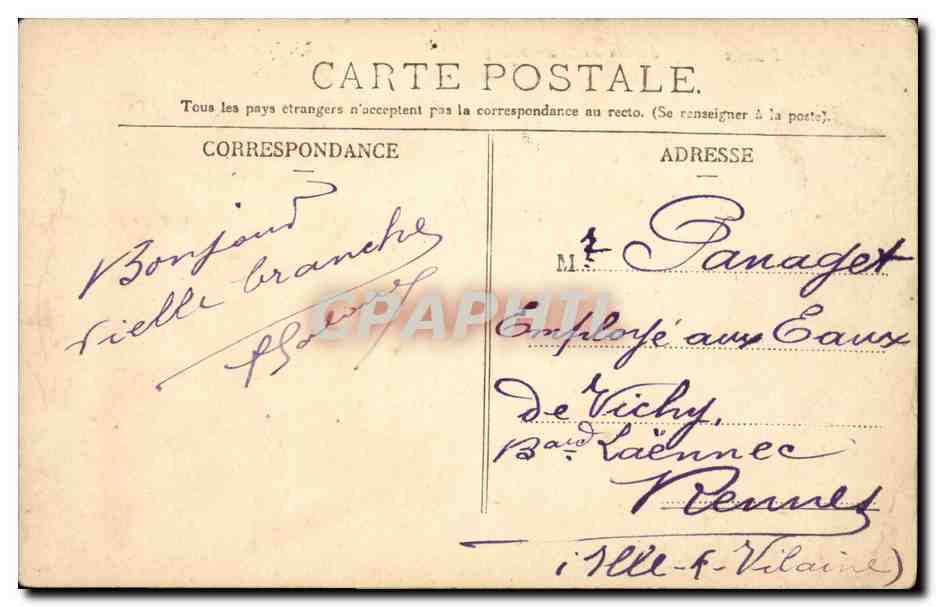 CARTE POSTALE.
Tous les pays étrangers n'acceptent pas la correspondance au recto. (Se renseigner à la poste).
CORRESPONDANCE
Bonjour
vielle branche
ADRESSE
Mr Panaget
Employé aux Eaux
de Vichy,
Bard Laënnec
Rennes
(Ille-&-Vilaine)
CPAPHIL